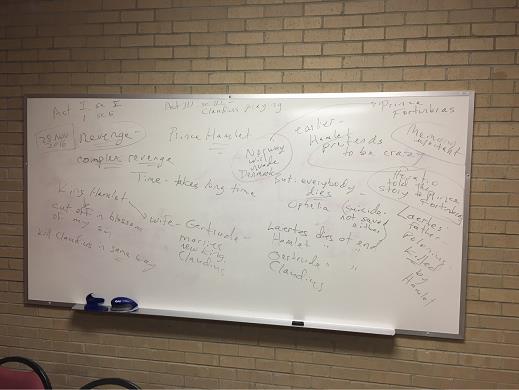 Act I sc V
Act III
Claudius praying
Prince
Fortinbras
29 Nov
2016
Revenge -
complex revenge
Prince Hamlet
Norway
will
invade
Denmark
earlier -
Hamlet
pretends
to be crazy
Memory
important
Time - takes long time
but everybody
dies
Horatio
told the
story to
Prince
Fortinbras
King Hamlet
cut off in blossom
of my sin
kill Claudius in same way
wife - Gertrude -
marries
new king,
Claudius
Ophelia (suicide -
not saved
either)
Laertes dies at end
Hamlet " "
Gertrude " "
Claudius
Laertes:
father
Polonius -
killed
by
Hamlet